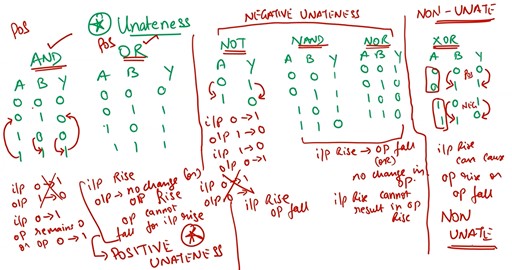 POS
Unateness
AND
A B Y
0 0 0
0 1 0
1 0 0
1 1 1
i/p 0→1
o/p 1→0
op remains 0
or op 0→1
POS
OR
A B Y
0 0 0
0 1 1
1 0 1
1 1 1
i/p Rise
o/p → no change (or)
op Rise
op cannot
fall for i/p rise
POSITIVE
UNATENESS
NEGATIVE UNATENESS
NOT
A Y
0 1
1 0
i/p 0→1
o/p 1→0
i/p 1→0
o/p 0→1
i/p 0→1
o/p 0→1
i/p Rise
op fall
NAND
A B Y
0 0 1
0 1 1
1 0 1
1 1 0
NOR
A B Y
0 0 1
0 1 0
1 0 0
1 1 0
i/p Rise → op fall
(or)
no change in
op.
i/p Rise cannot
result in op
Rise
NON-UNATE
XOR
A B Y
0 0 0
0 1 1
POS
1 0 1
1 1 0
NEG
i/p Rise
can cause
op rise or
op fall
NON
UNATE